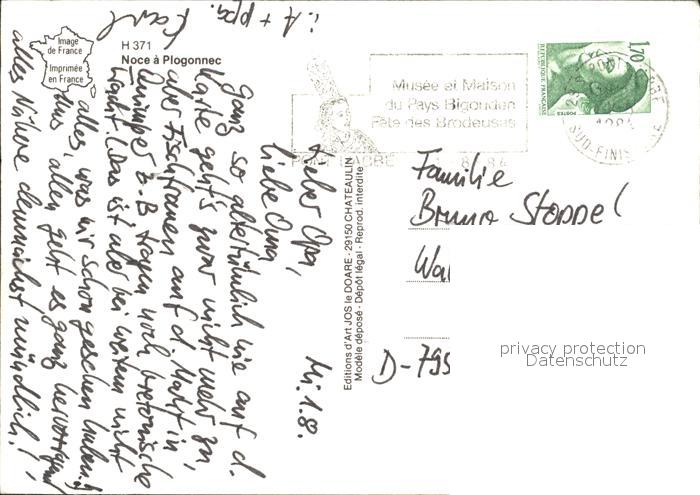 Image
de France
Imprimée
en France
H 371
Noce à Plogonnec
Musée et Maison
du Pays Bigouden
Fête des Brodeuses
PONT L'ABBE
1,70
REPUBLIQUE FRANÇAISE
POSTES
SUD-FINISTERE
Editions d'Art JOS le DOARE - 29150 CHATEAULIN
Modèle déposé - Dépôt légal - Reprod. interdite
Mi. 1.8.
Lieber Opa,
liebe Oma,
ganz so altertümlich wie auf d.
Karte geht's zwar nicht mehr zu,
aber Fischfrauen auf d. Markt in
Quimper z.B tragen noch bretonische
Tracht. Das ist aber bei weitem nicht
alles, was wir schon gesehen haben.
Uns allen geht es ganz hervorragend
alles Nähere demnächst mündlich!
Familie
Bruno Stoppel
Wal
D-795
privacy protection
Datenschutz